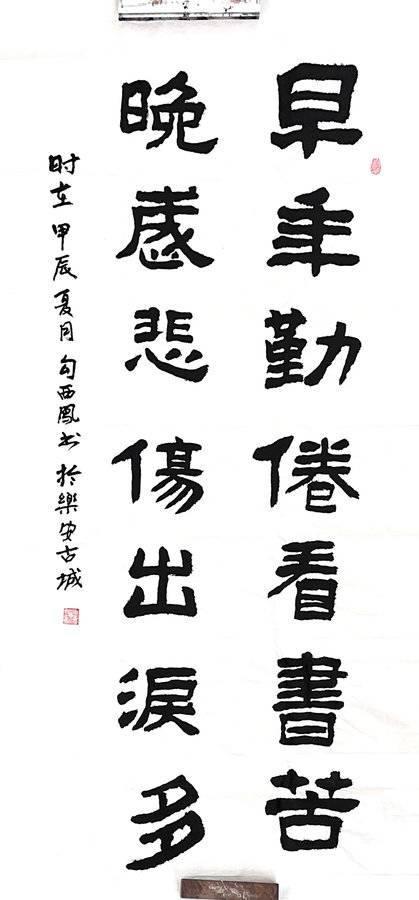 早年勤倦看書苦
晚感悲傷出淚多
时在甲辰夏月勾西鳳书於樂安古城